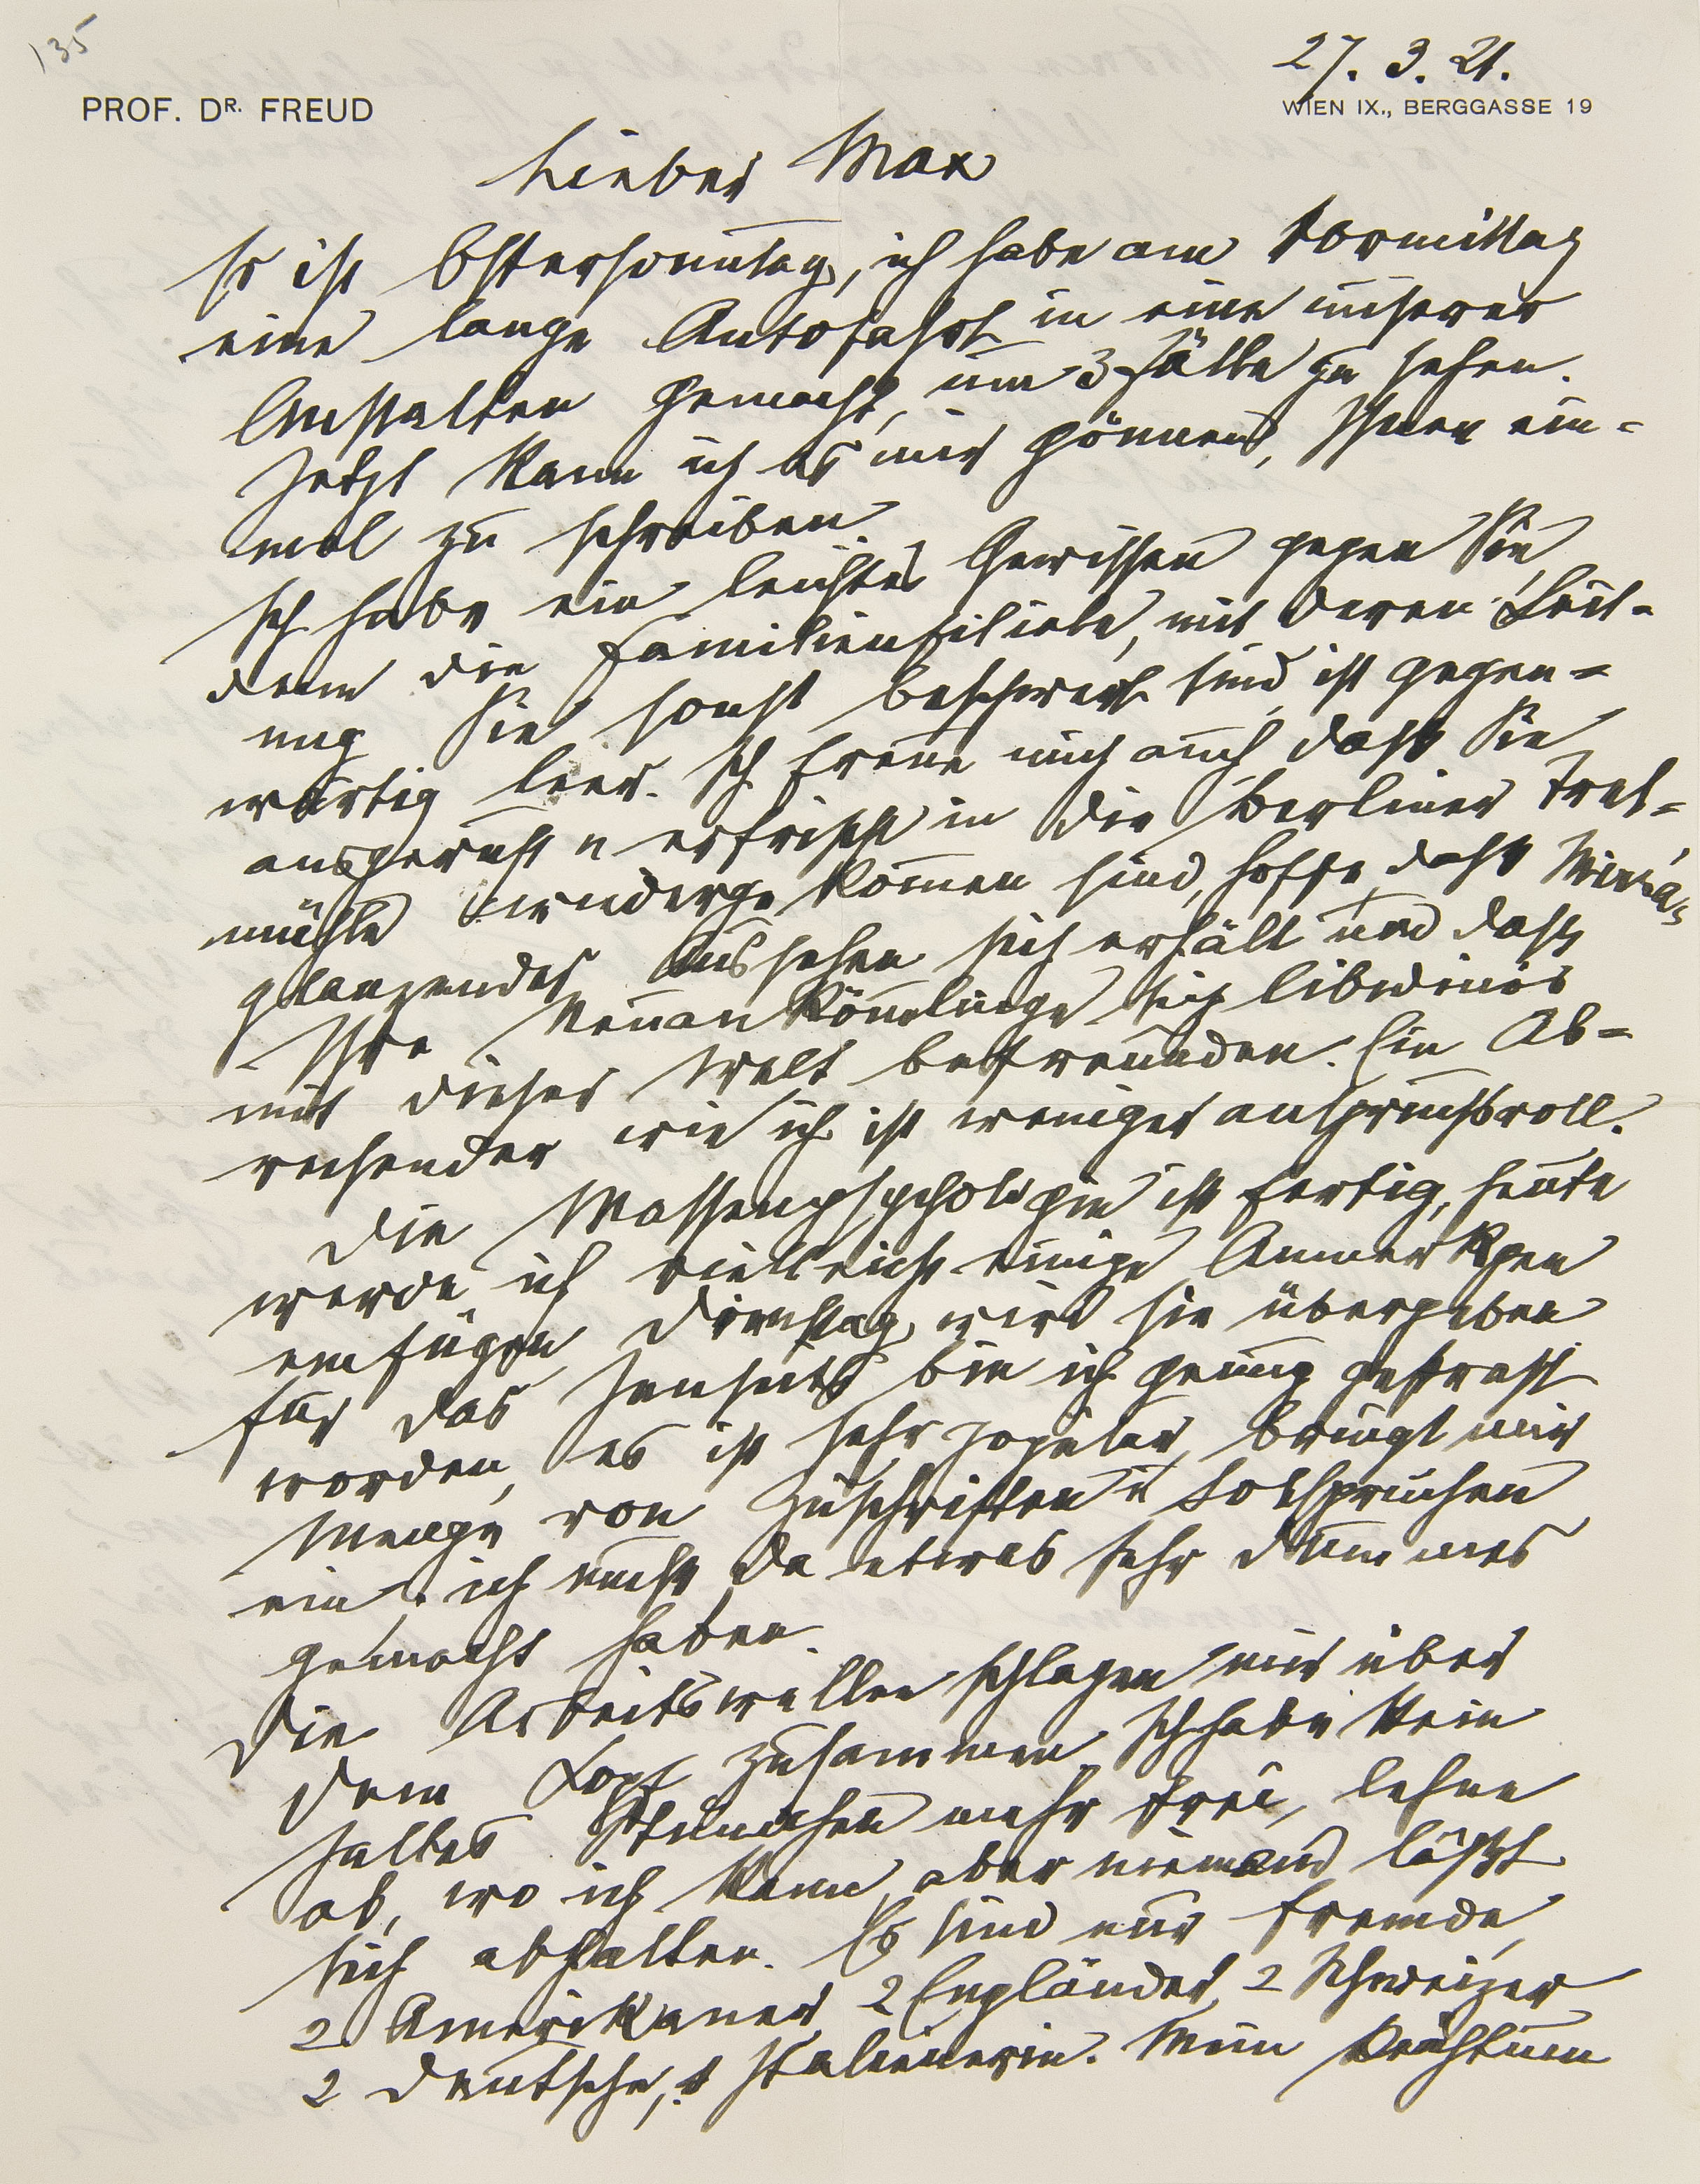 135
27. 3. 21.
PROF. DR. FREUD
WIEN IX., BERGGASSE 19
Lieber Max
Es ist Ostersonntag, ich habe am Vormittag
eine lange Autofahrt in eine unserer
Anstalten gemacht, um 3 Fälle zu sehen.
Jetzt kann ich es mir gönnen, Ihnen ein-
mal zu schreiben.
Ich habe ein leichtes Gewissen gegen Sie,
denn die Familienfiliale, mit deren Leit-
ung Sie sonst beschwert sind, ist gegen-
wärtig leer. Ich freue mich auch daß Sie
ausgeruht u erfrischt in die Berliner Tret-
mühle wiedergekommen sind, hoffe, daß Mirra's
glänzendes Aussehen sich erhält und daß
Ihre Neuankömmlinge sich libidinös
mit dieser Welt befreunden. Ein Ab-
reisender wie ich ist weniger anspruchsvoll.
Die Massenpsychologie ist fertig, heute
werde ich vielleicht einige Anmerkgen
einfügen, Dienstag wird sie übergeben
für das Jenseits bin ich genug gestraft
worden, es ist sehr populär, bringt mir
Menge von Zuschriften u Lobsprüchen
ein. ich muß da etwas sehr dummes
gemacht haben.
Die Arbeitswellen schlagen mir über
dem Kopf zusammen, Ich habe kein
halbes Stündchen mehr frei, lehne
ab, wo ich kann, aber niemand läßt
sich abhalten. Es sind nur Fremde,
2 Amerikaner 2 Engländer, 2 Schweizer
2 Deutsche, 1 Italienerin. Mein Reichtum